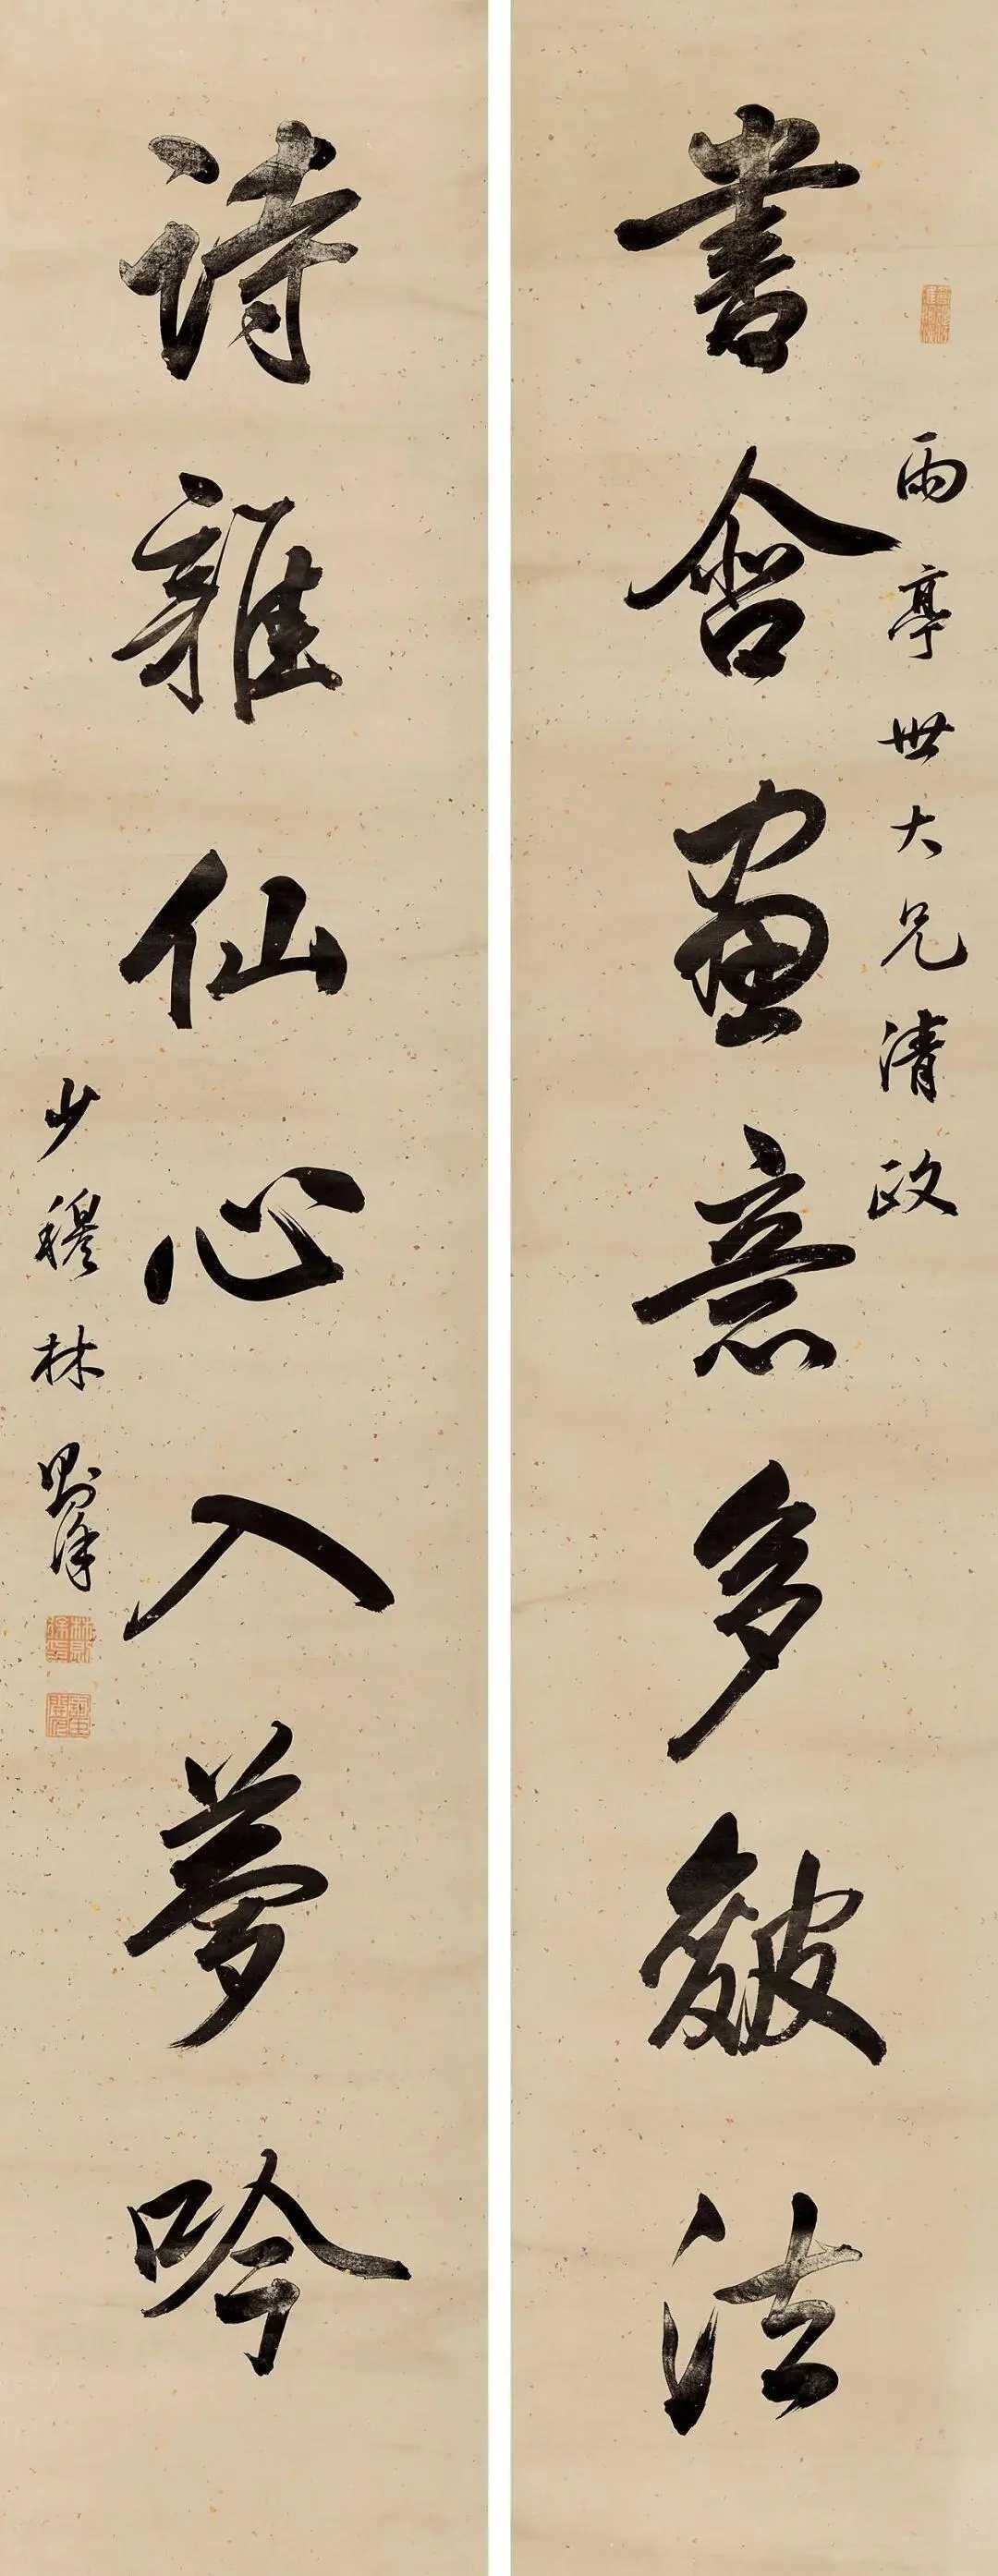 雨亭世大兄清政
書含畫意多皴法
詩雜仙心入夢吟
少穆林則徐
林則徐印